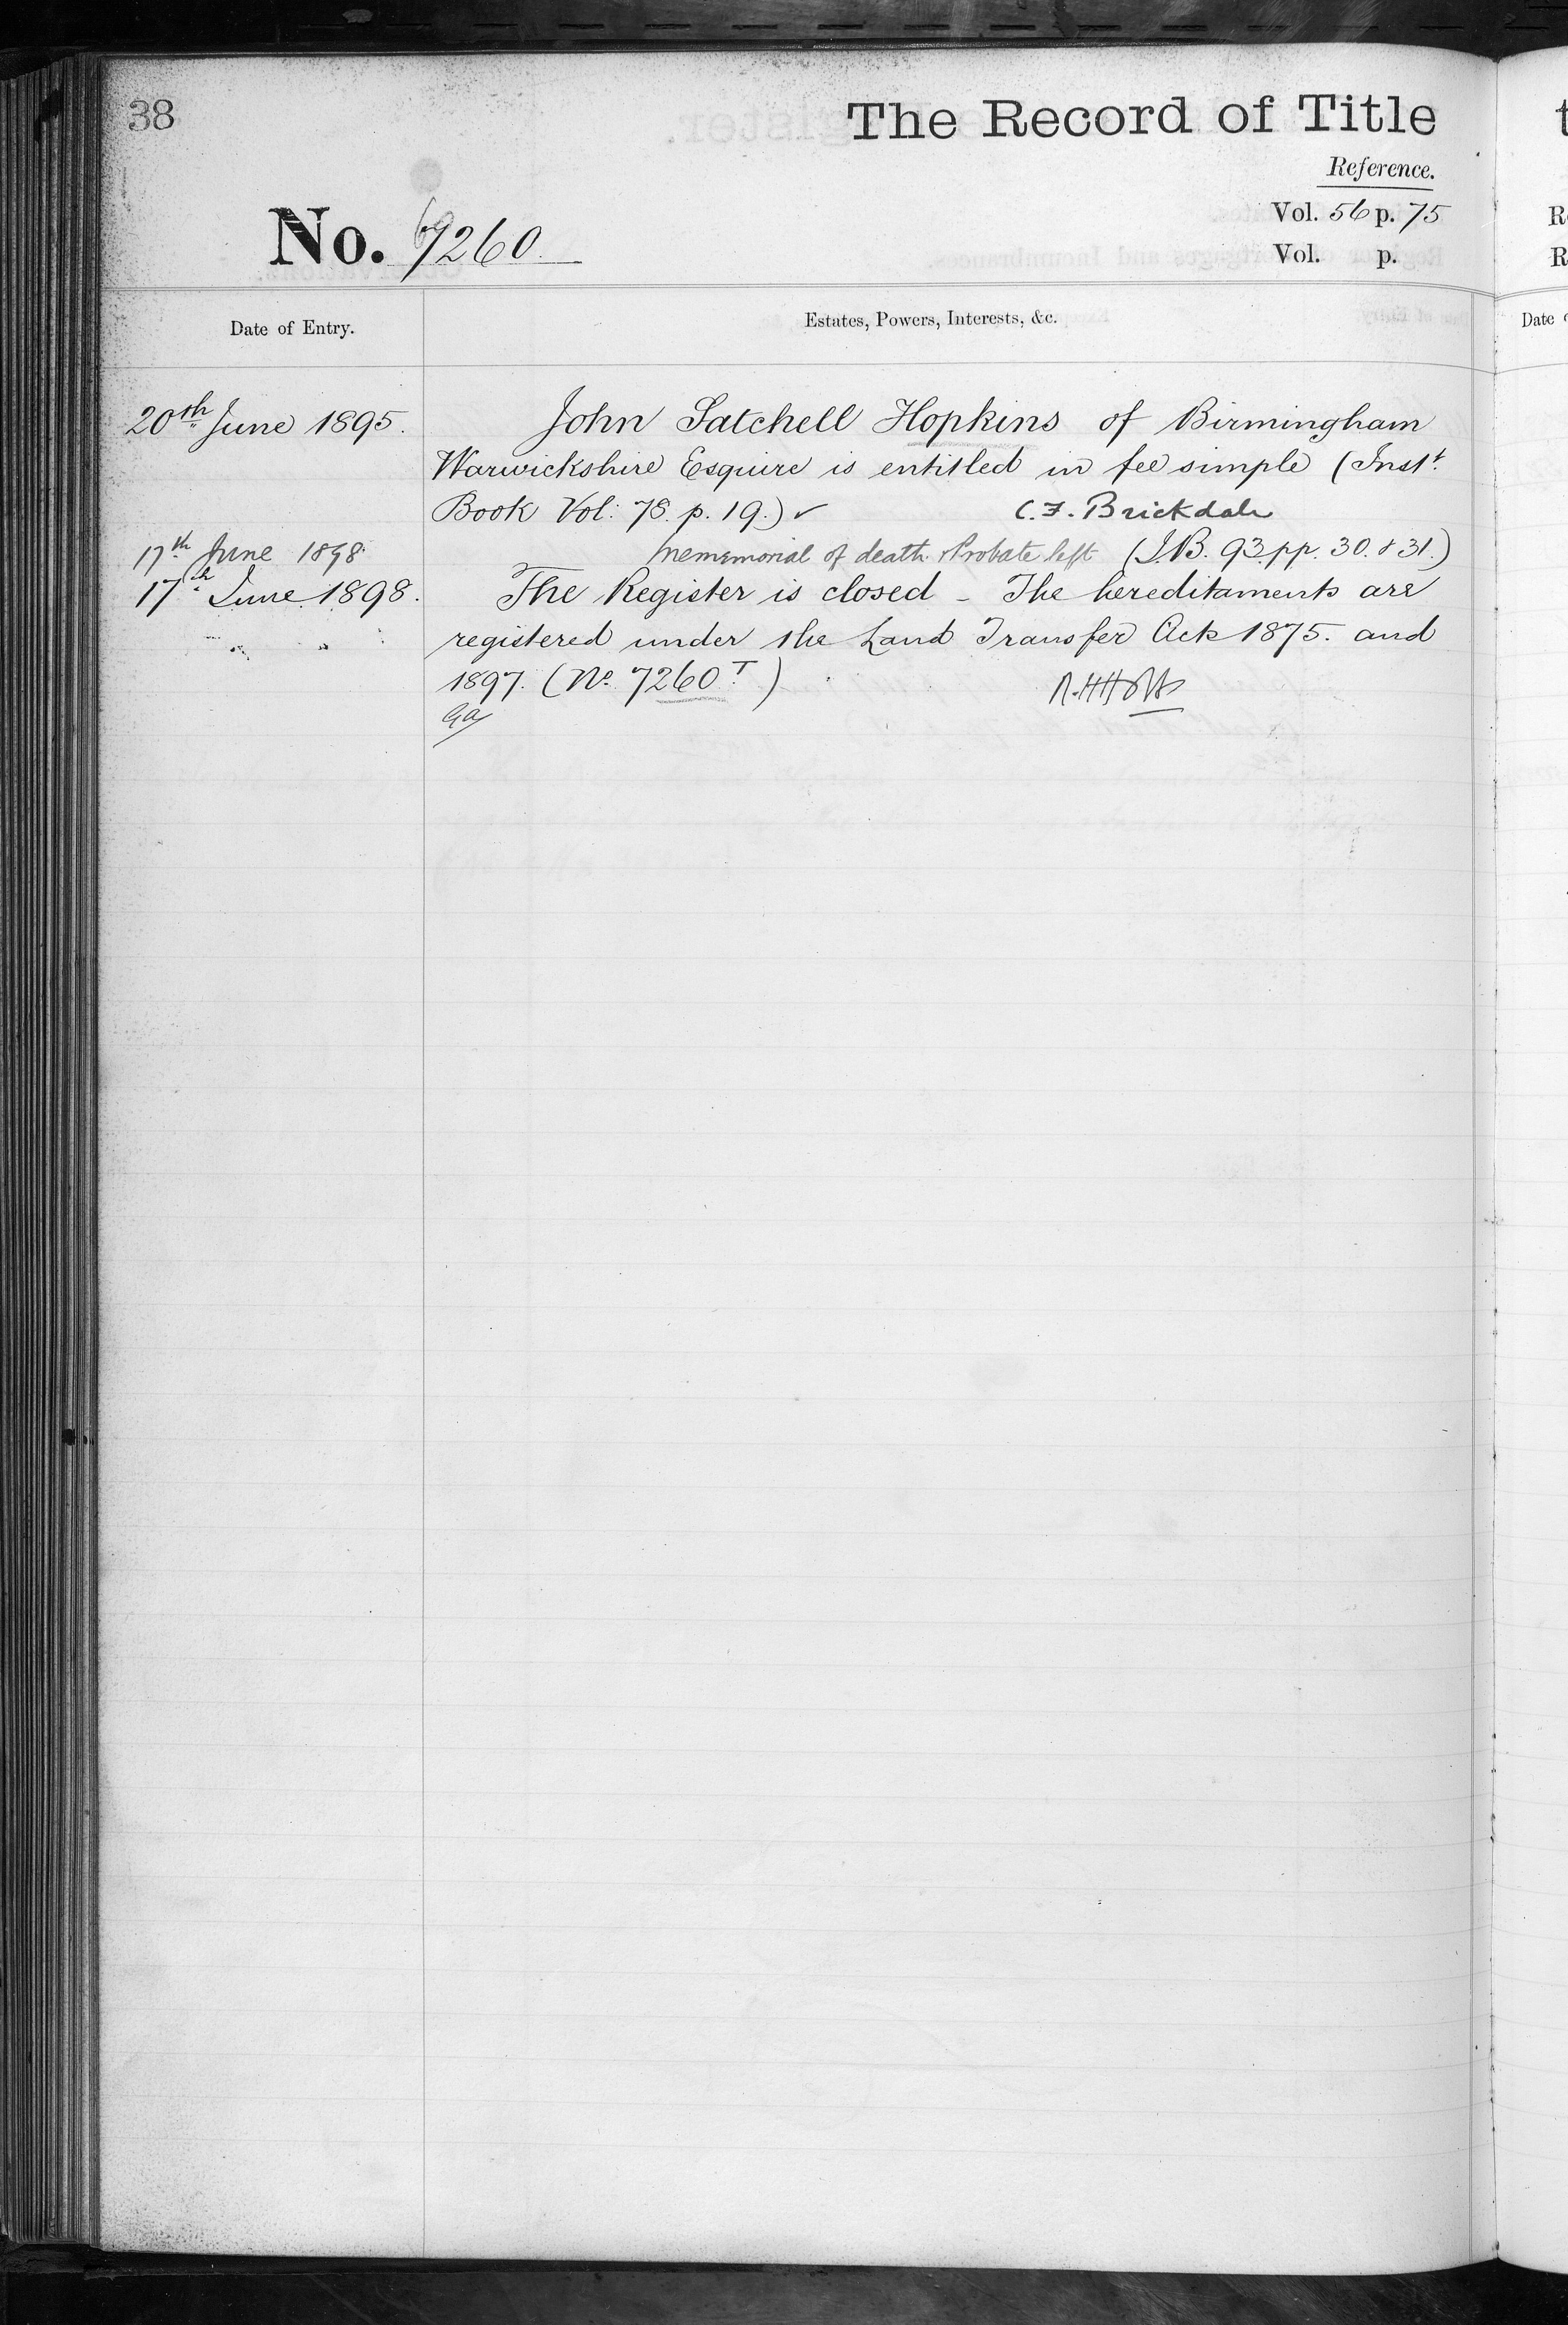 38
The Record of Title
Reference.
Vol. 56 p. 75
No. 7260
Vol. p.
Date of Entry.
Estates, Powers, Interests, &c.
20th June 1895. John Satchell Hopkins of Birmingham
Warwickshire Esquire is entitled in fee simple (Instt.
Book Vol: 78. p. 19.) ✓ C. F. Brickdale
17th June 1898 memorial of death & Probate left (I.B. 93 pp. 30. & 31.)
17th June 1898. The Register is closed _ The hereditaments are
" " registered under the Land Transfer Acts 1875. and
1897. (No. 7260 T)
R
R
Date